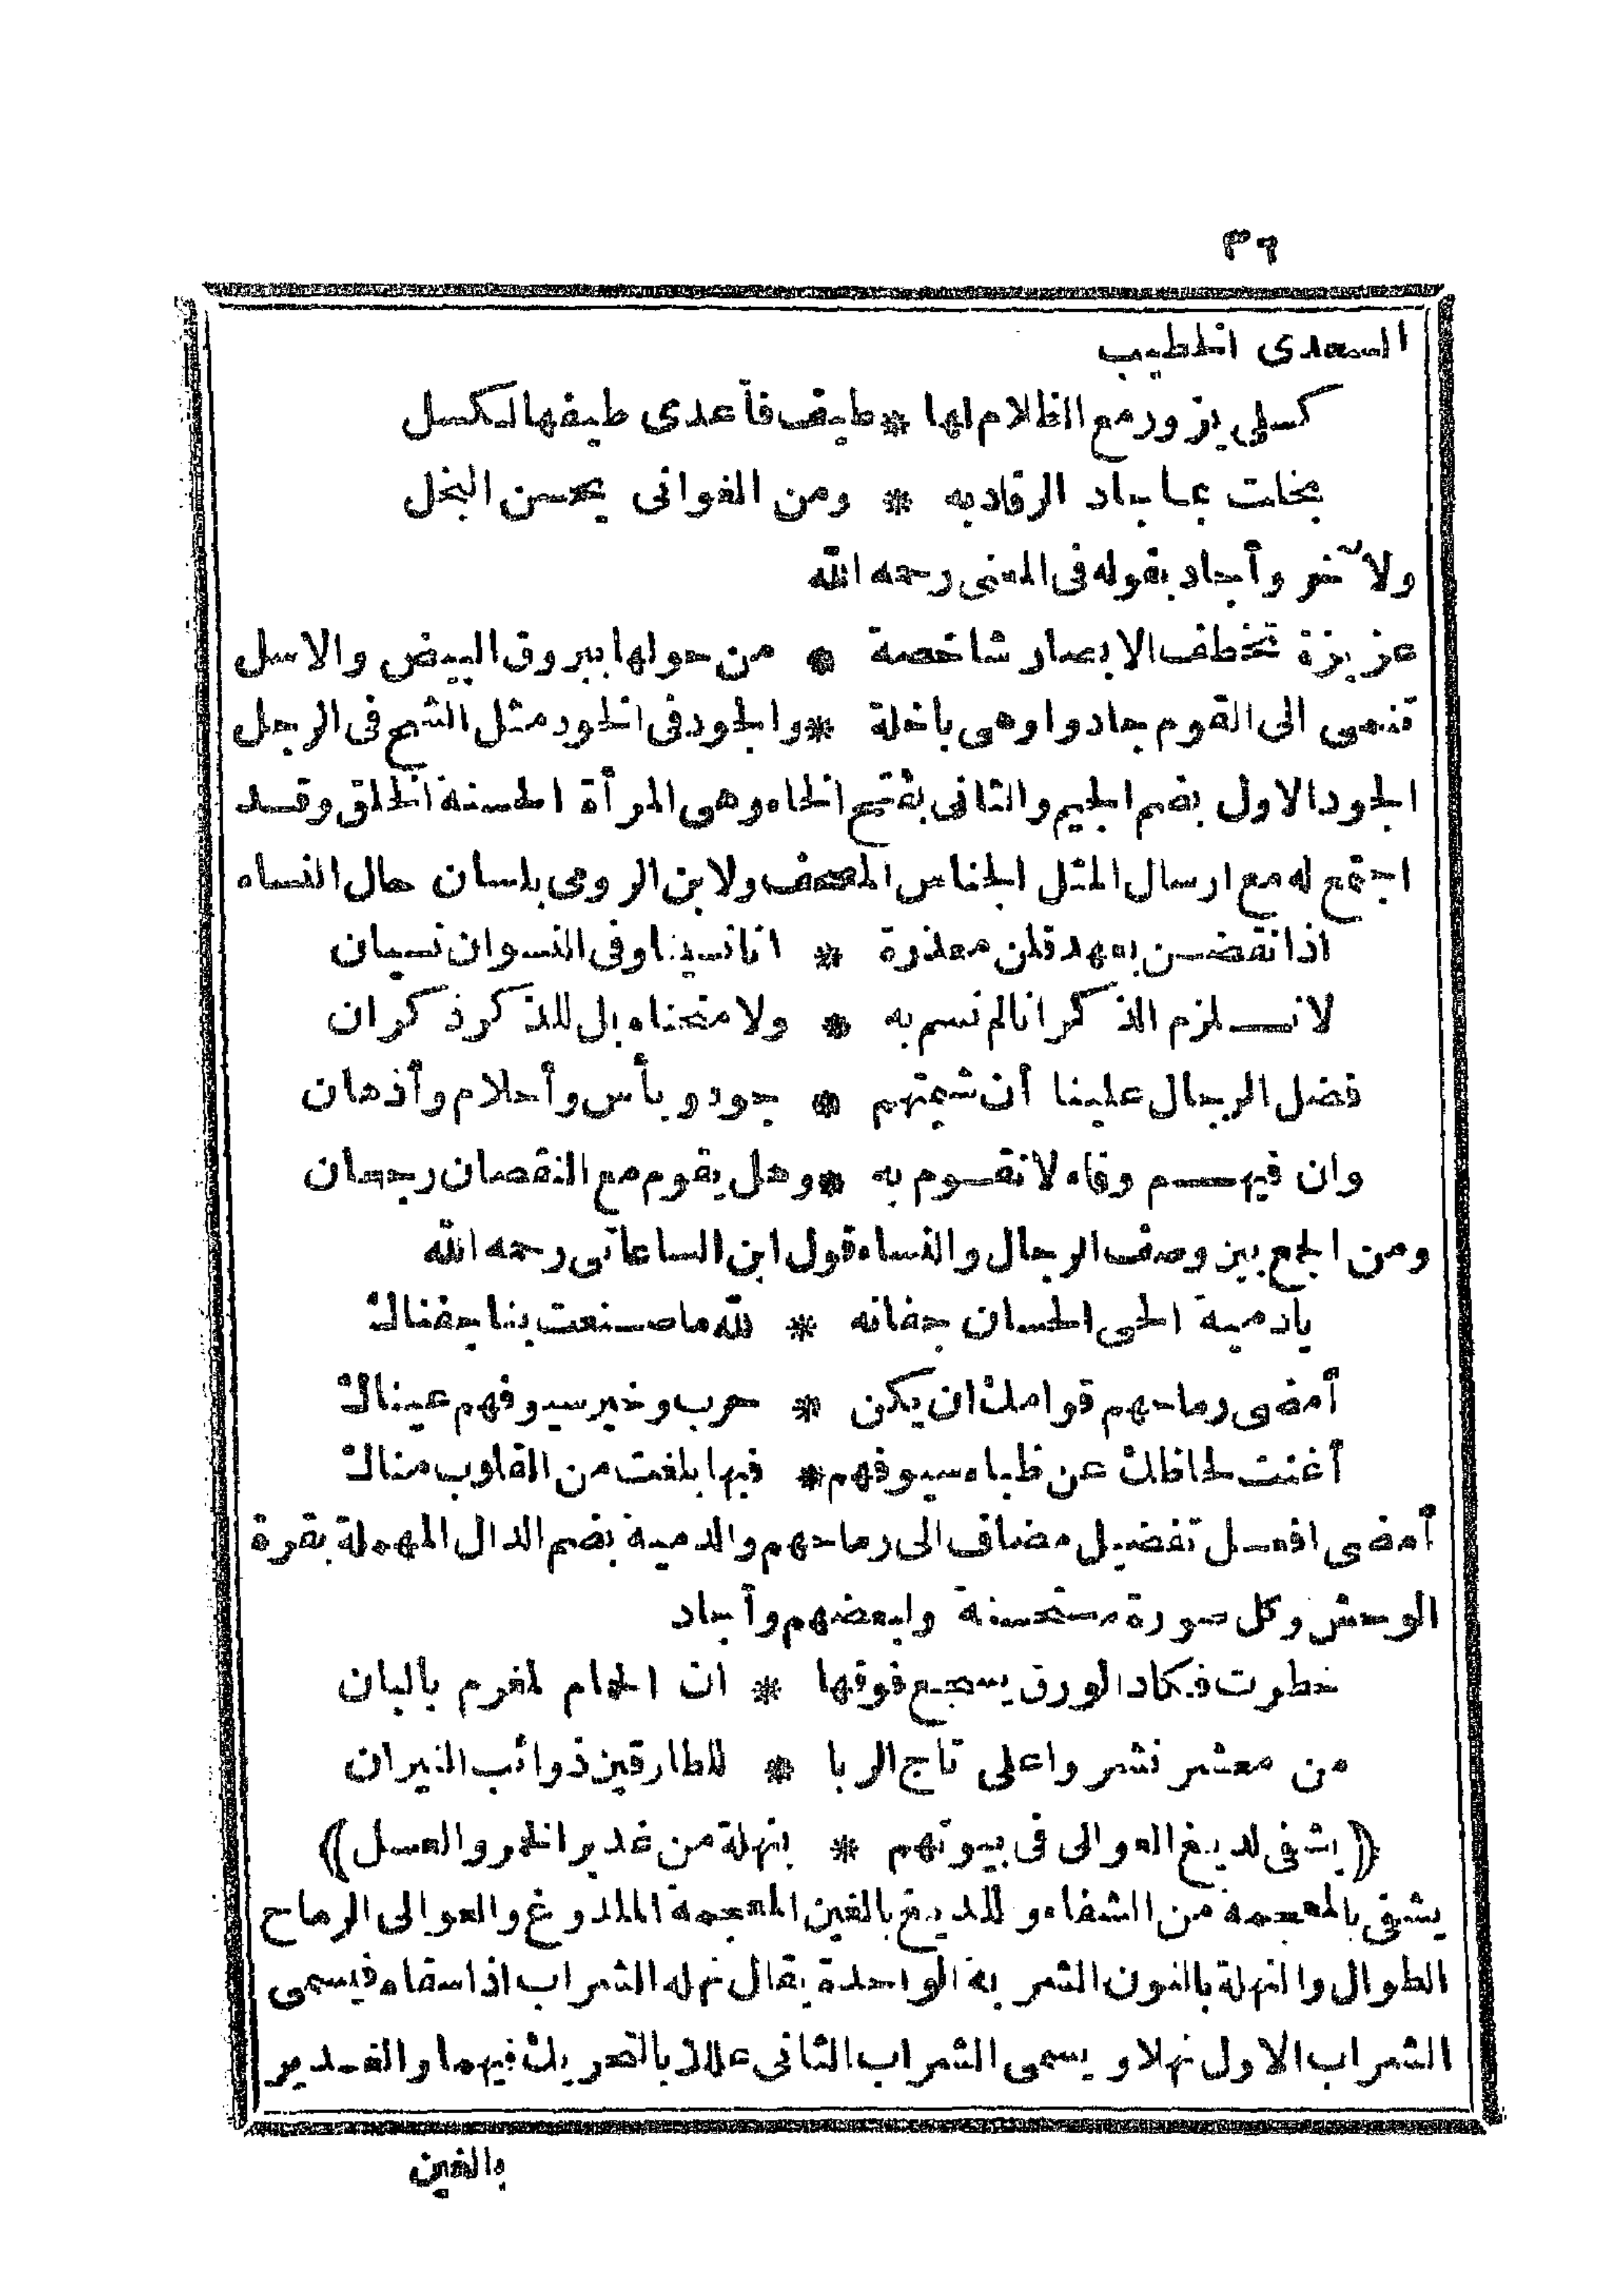 ٣٦
السعدى الخطيب
كسلى يزور مع الظلام لها * طيف فأعدى طيفها الكسل
بخلت بما جاد الرقاد به * ومن الغوانى يحسن البخل
ولآخر وأجاد بقوله فى المعنى رحمه الله
عزيزة تخطف الابصار شاخصة * من حولها ببروق البيض والاسل
تنمى الى القوم جادوا وهى باخلة * والجود فى الخود مثل الشح فى الرجل
الجود الاول بضم الجيم والثانى بفتح الخاء وهى المرأة الحسنة الخلق وقد
اجتمع له مع ارسال المثل الجناس المصحف ولابن الرومى بلسان حال النساء
اذا نقضن بعهد قلن معذرة * انا نسينا وفى النسوان نسيان
لا نلزم الذكر انا لم نسم به * ولا منحناه بل للذكر ذكران
فضل الرجال علينا أن شيمتهم * جود وبأس وأحلام وأذهان
وان فيهم وفاء لا نقوم به * وهل يقوم مع النقصان رجحان
ومن الجمع بين وصف الرجال والنساء قول ابن الساعاتى رحمه الله
يا دمية الحى الحسان جفانه * لله ما صنعت بنا جفناك
أمضى رماحهم قوامك ان يكن * حرب وخير سيوفهم عيناك
أغنت لحاظك عن ظباء سيوفهم * فبها بلغت من القلوب مناك
أمضى افعل تفضيل مضاف الى رماحهم والدمية بضم الدال المهملة بقرة
الوحش وكل صورة مستحسنة ولبعضهم وأجاد
خطرت فكاد الورق يسجع فوقها * ان الحمام لمغرم بالبان
من معشر نشروا على تاج الربا * للطارقين ذوائب النيران
(يشفى لديغ العوالى فى بيوتهم * بنهلة من غدير الخمر والعسل)
يشفى بالمعجمة من الشفاء واللديغ بالغين المعجمة الملدوغ والعوالى الرماح
الطوال والنهلة بالنون الشربة الواحدة يقال نهله الشراب اذا سقاه فيسمى
الشراب الاول نهلا ويسمى الشراب الثانى عللا بالتحريك فيهما والغدير
بالغين